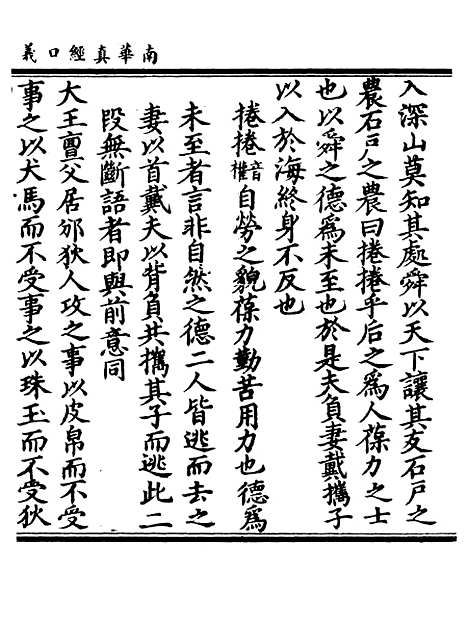 南華真經口義
入深山莫知其處舜以天下讓其友石戶之
農石戶之農曰捲捲乎后之為人葆力之士
也以舜之德為未至也於是夫負妻戴攜子
以入於海終身不反也
捲捲音權自勞之貌葆力勤苦用力也德為
未至者言非自然之德二人皆逃而去之
妻以首戴夫以背負共攜其子而逃此二
段無斷語者即與前意同
大王亶父居邠狄人攻之事以皮帛而不受
事之以犬馬而不受事之以珠玉而不受狄